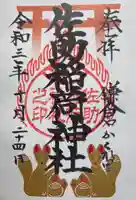 奉拝
鎌倉かくれ里
佐助稲荷神社
令和三年十一月二十四日